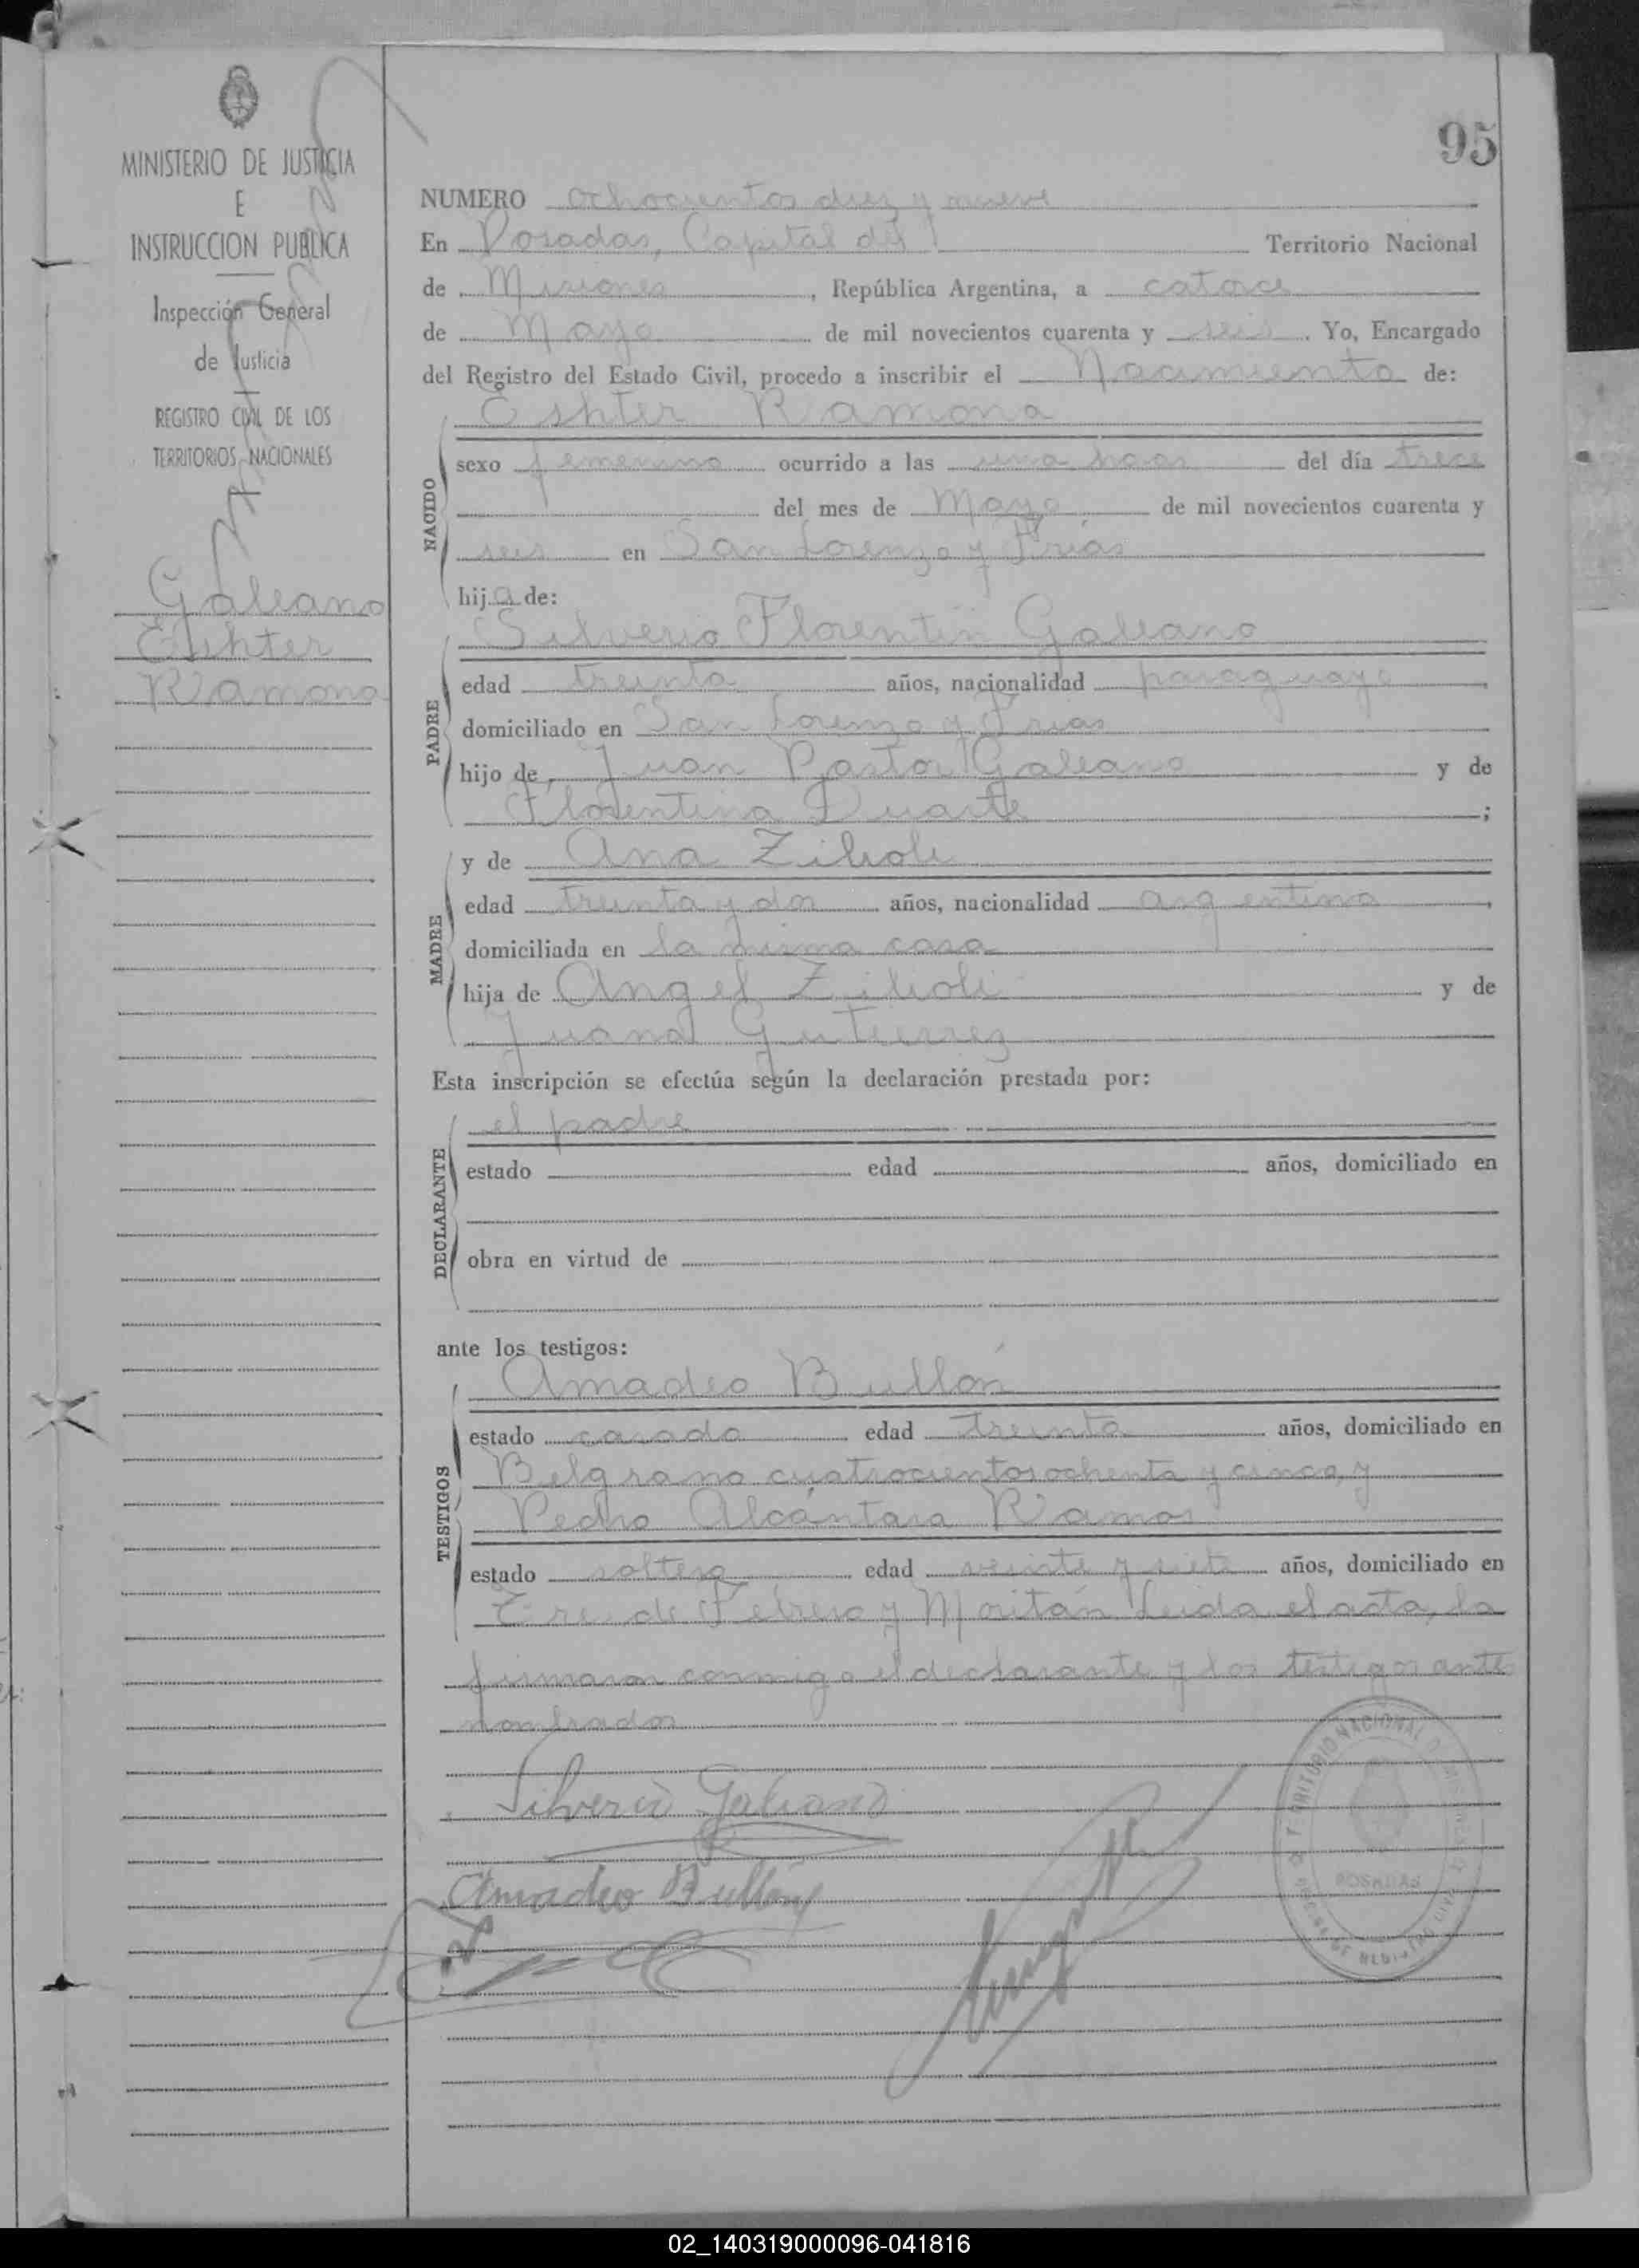 95
MINISTERIO DE JUSTICIA
E
INSTRUCCION PUBLICA
Inspección General
de Justicia
REGISTRO CIVIL DE LOS
TERRITORIOS NACIONALES
Galeano
Eshter
Ramona
NUMERO ochocientos diez y nueve
En Posadas, Capital del Territorio Nacional
de Misiones, República Argentina, a catorce
de Mayo de mil novecientos cuarenta y seis. Yo, Encargado
del Registro del Estado Civil, procedo a inscribir el Nacimiento de:
Eshter Ramona
NACIDO
sexo femenino ocurrido a las una hora del día trece
del mes de Mayo de mil novecientos cuarenta y
seis en San Lorenzo y Frias
hija de:
Silverio Florentin Galeano
PADRE
edad treinta años, nacionalidad paraguayo
domiciliado en San Lorenzo y Frias
hijo de Juan Pastor Galeano y de
Florentina Duarte;
y de Ana Zilioli
MADRE
edad treinta y dos años, nacionalidad argentina
domiciliada en la misma casa
hija de Angel Zilioli y de
Juana Gutierrez
Esta inscripción se efectúa según la declaración prestada por:
el padre
DECLARANTE
estado edad años, domiciliado en
obra en virtud de
ante los testigos:
Amadeo Bullón
TESTIGOS
estado casado edad treinta años, domiciliado en
Belgrano cuatrocientos ochenta y cinco, y
Pedro Alcántara Ramos
estado soltero edad veinte y siete años, domiciliado en
Tres de Febrero y Moritán Leida el acta, la
firmaron conmigo el declarante y los testigos ante
nombrados
Silverio Galeano
Amadeo Bullón
TERRITORIO NACIONAL DE MISIONES
POSADAS
02_140319000096-041816